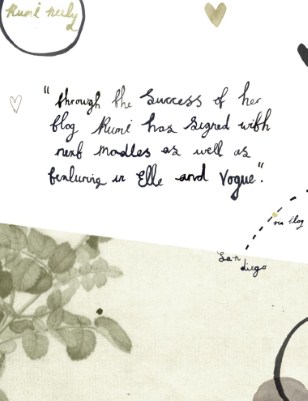 Rumi Neely
"through the success of her
blog Rumi has signed with
next modles as well as
featuring in Elle and Vogue."
San
diego